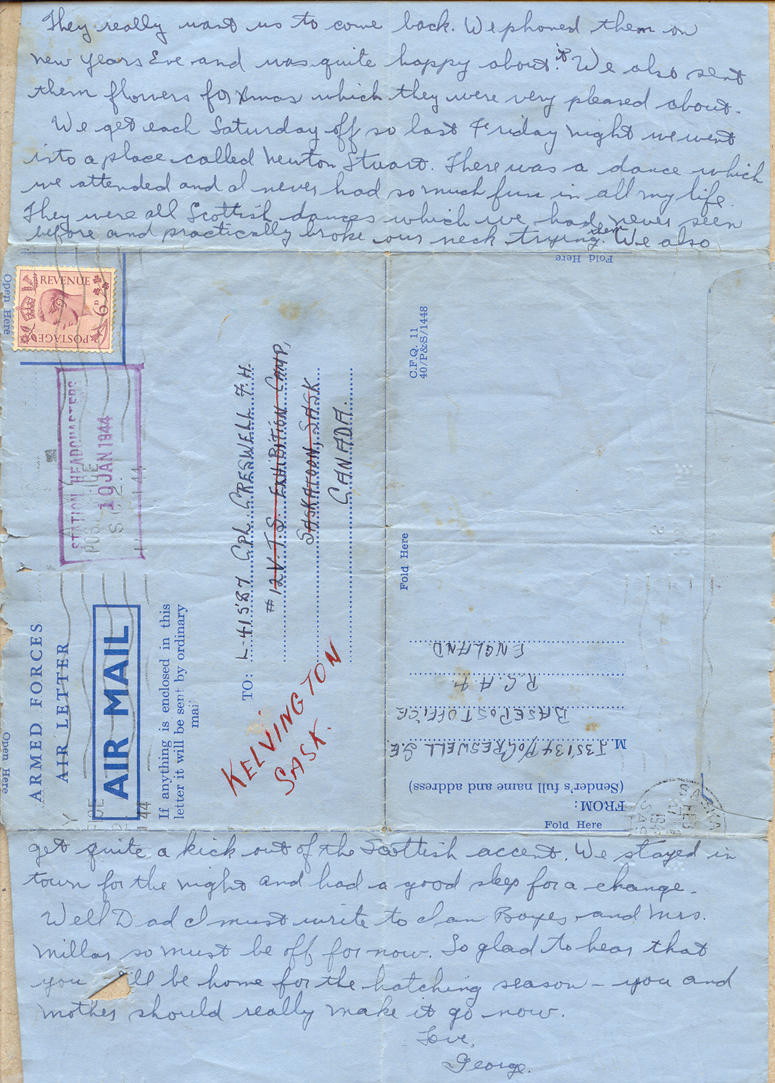 They really want us to come back. We phoned them on
new years Eve and was quite happy about it. We also sent
them flowers for Xmas which they were very pleased about.
We get each Saturday off so last Friday night we went
into a place called Newton Stuart. There was a dance which
we attended and I never had so much fun in all my life.
They were all Scottish dances which we had never seen
before and practically broke our neck trying them. We also
Fold Here
Open Here
POSTAGE REVENUE
6D
C.F.Q. 11
40/P&S/1448
STATION HEADQUARTERS
10 JAN 1944
ARMED FORCES
AIR LETTER
AIR MAIL
If anything is enclosed in this
letter it will be sent by ordinary
mail
TO: L-41587 CPL. CRESWELL F.H.
#12 V.T.S. EXHIBITION CAMP,
SASKATOON, SASK
CANADA.
KELVINGTON
SASK.
Fold Here
FROM:
(Sender's full name and address)
M. J35134 P/O CRESWELL
BASE POST OFFICE
ENGLAND
Fold Here
Open Here
get quite a kick out of the Scottish accent. We stayed in
town for the night and had a good sleep for a change.
Well Dad I must write to Ian and Mrs.
Millar so must be off for now. So glad to hear that
you will be home for the hatching season – you and
mother should really make it go now.
Love,
George.